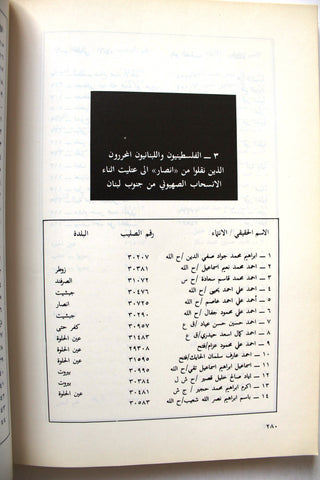 ٣ ــ الفلسطينيون واللبنانيون المحررون
الذين نقلوا من «انصار» الى عتليت اثناء
الانسحاب الصهيوني من جنوب لبنان
الاسم الحقيقي / الانتماء رقم الصليب البلدة
١ ــ ابراهيم محمد جواد صفي الدين/ح الله ٣٠٢٠٧
٢ ــ احمد محمد نعيم اسماعيل/ح الله ٣٠٣٨١ زوطر
٣ ــ احمد محمد قاسم سعادة/ح س ٣١٠٧٢ الصرفند
٤ ــ احمد علي احمد يحيى/ح الله ٣٠٤٧٦ جبشيت
٥ ــ أحمد علي احمد عاصم/ح الله ٣٠٧٢٥ انصار
٦ ــ احمد علي محمود جفال/ح الله ٣٠٢٩٠ جبشيت
٧ ــ احمد حسين حسن عياد/ق ع ٣٠٩٥٧ كفر حتى
٨ ــ احمد كمال اسعد حيدري/ق ع ٣١٤٨٣ عين الحلوة
٩ ــ احمد علي محمود عزام/فتح ٢٩٣٠٨ عين الحلوة
١٠ ــ احمد عارف سلمان الحايك/فتح ٣١٥٩٥ عين الحلوة
١١ ــ اسماعيل اسماعيل تقي/ح الله ٣٠٩٩٥ بيروت
١٢ ــ اياد صالح خليل قصير/ح ش ل ٣٠٣٨٤ بيروت
١٣ ــ اكرم ابراهيم محمد حجير/ج ش ٣٠٤٨١ عين الحلوة
١٤ ــ باسم ابراهيم نصر الله شعيب/ح الله ٣٠٥٨٣
٢٨٠